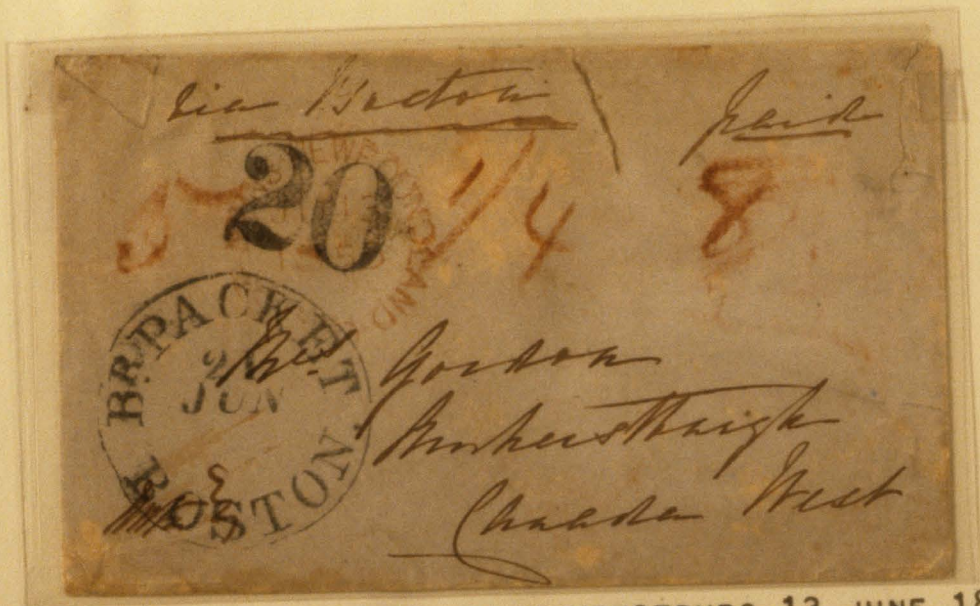 via Boston paid
20 1/4 8
NEWFOUNDLAND
BR. PACKET
JUN
BOSTON
Mrs Gordon
Amherstburgh
Canada West
12 JUNE